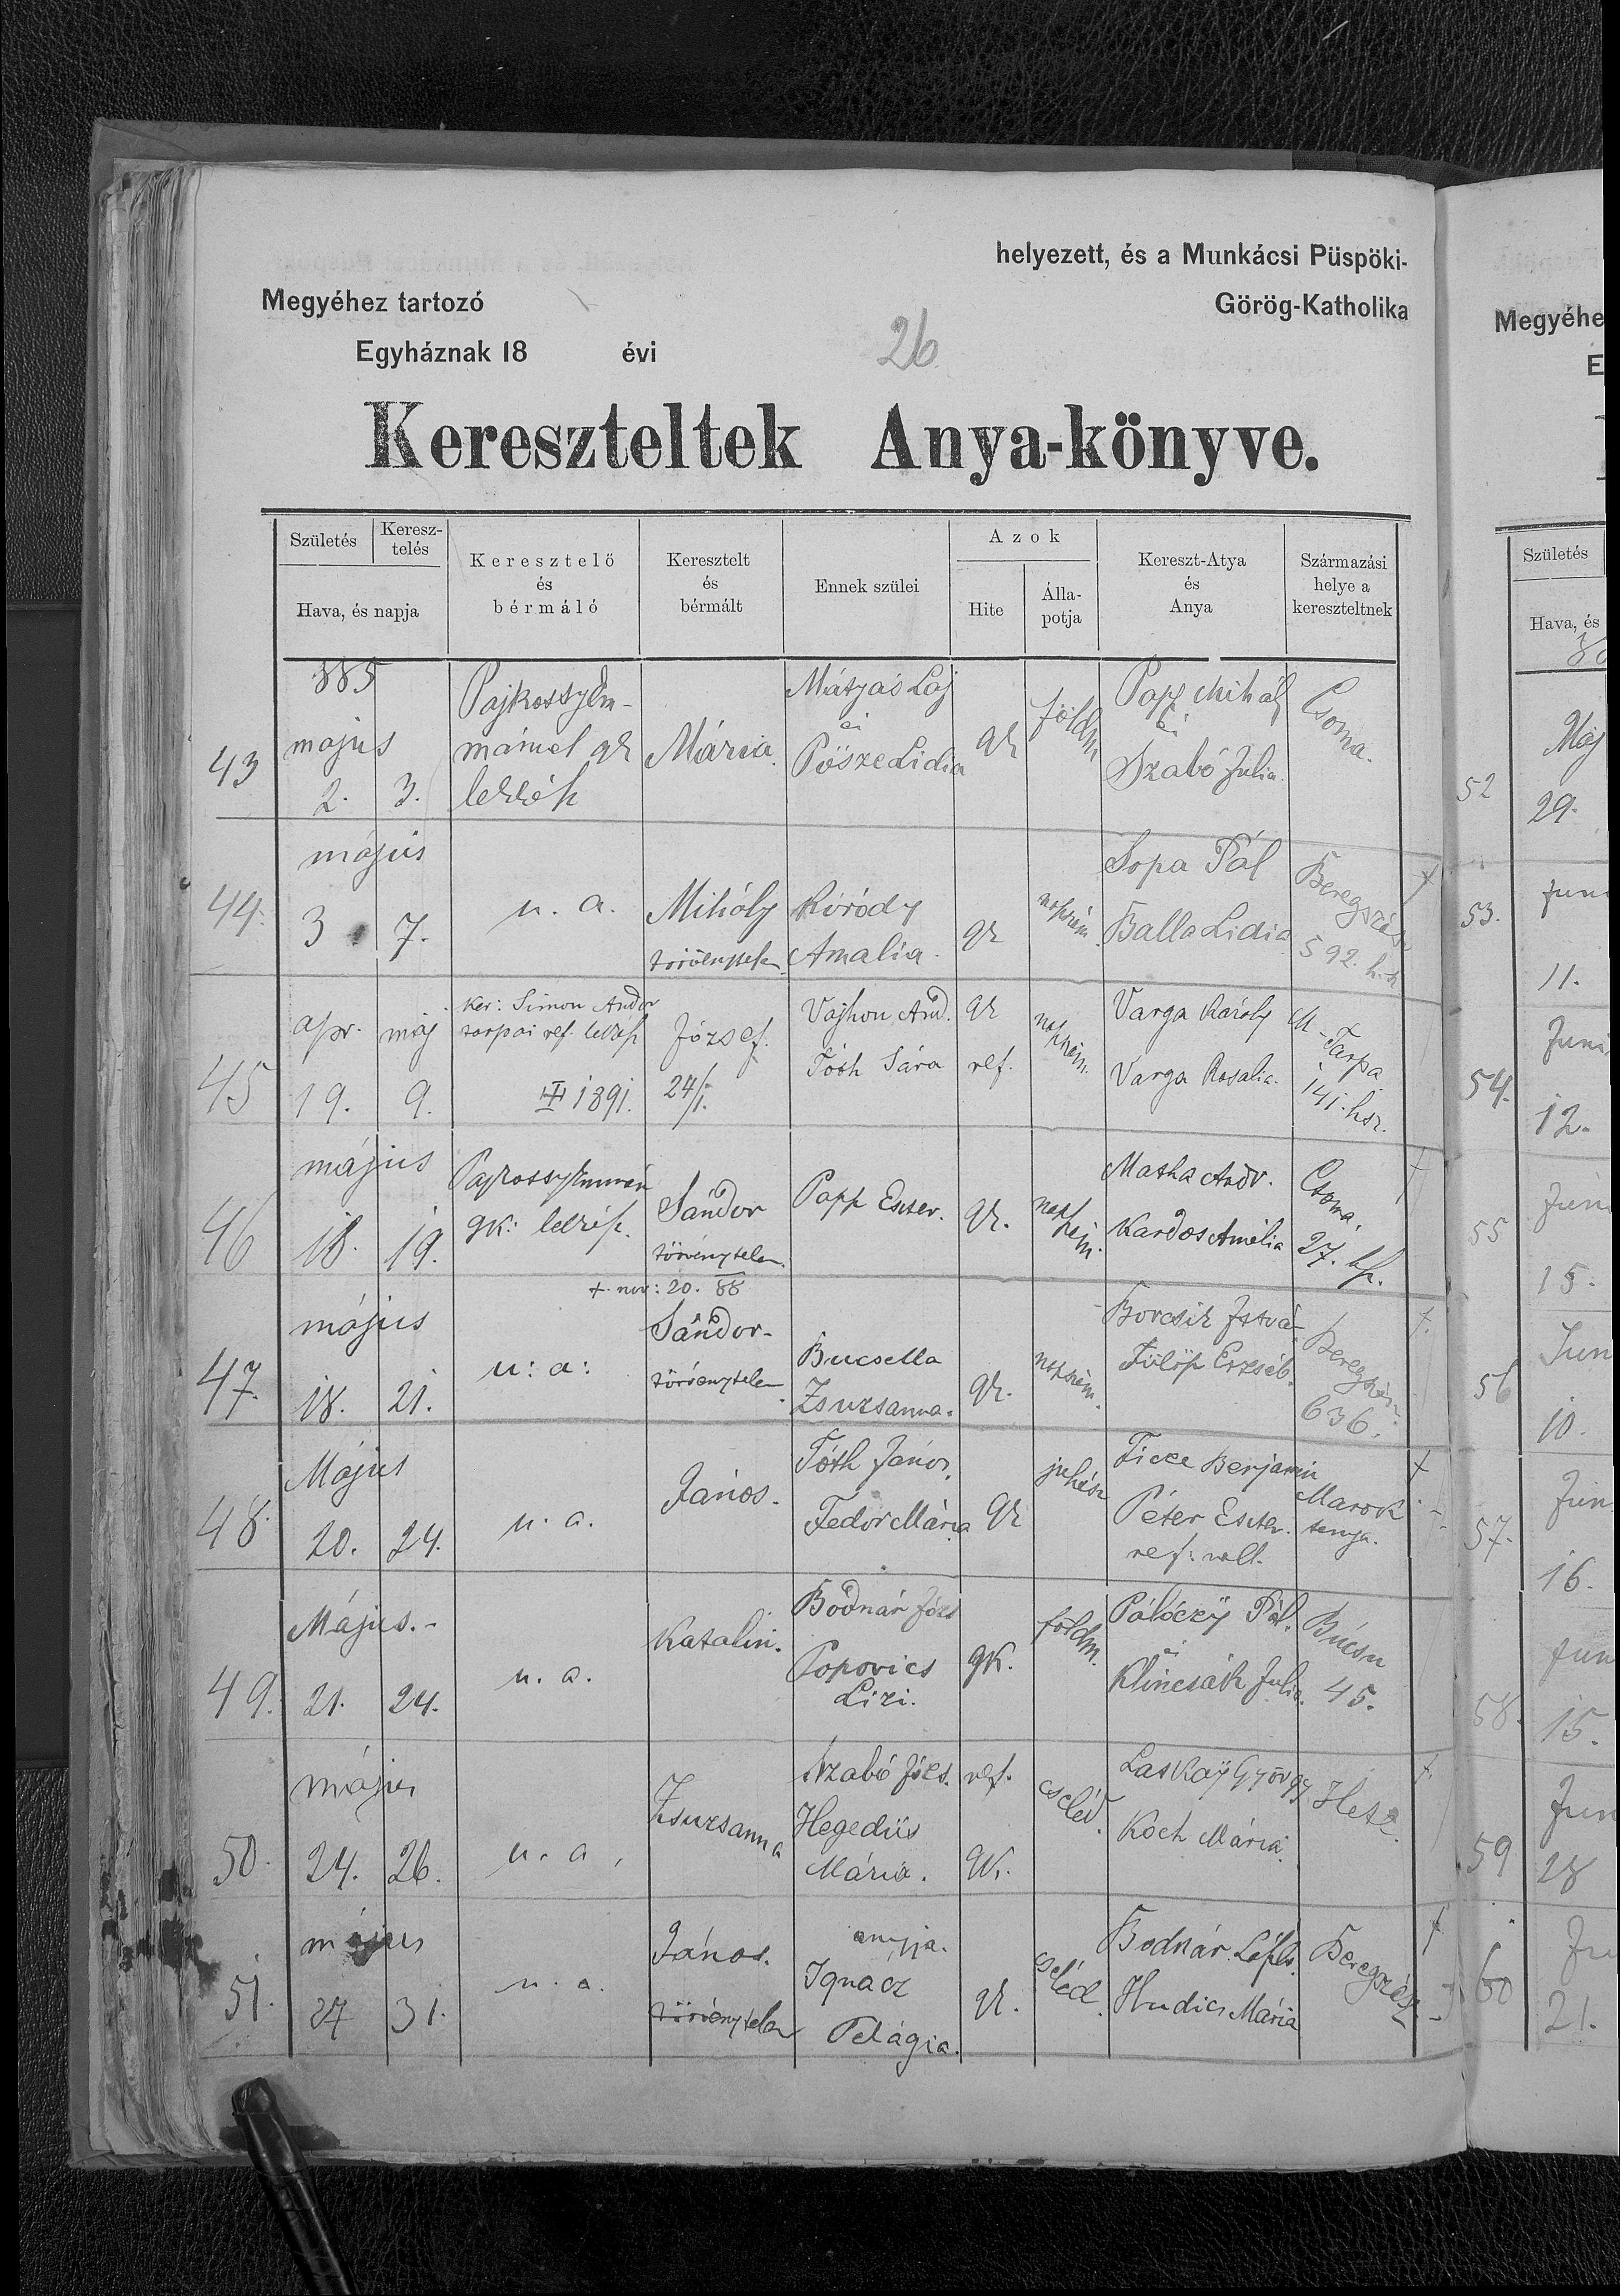 helyezett, és a Munkácsi Püspöki-
Megyéhez tartozó Görög-Katholika
Egyháznak 18 évi 26
Kereszteltek Anya-könyve.
Születés Keresz-telés Hava, és napja Keresztelő és bérmáló Keresztelt és bérmált Ennek szülei Azok Hite Álla-potja Kereszt-Atya és Anya Származási helye a kereszteltnek
885
43 május 2. 3. Pajkossy Em-mánuel gk lelkész Mária Mátyás Laj és Pösze Lidia gk földm Papp Mihály és Szabó Julia. Csoma.
44. május 3 7. u. a. Mihály törvénytelen Kóródy Amalia. gk napszám. Sopa Pál Balla Lidia Beregszász 592. h. sz †
45 apr. 19. máj 9. Ker: Simon Andor tarpai ref. lelkész III 1891. József. 24/1. Vajhon And. gk Tóth Sára ref. napszám. Varga Károly Varga Rosalia. M-Tarpa 141. hsz.
46 május 18. 19. gk: lelkész. Sándor törvénytelen. Papp Eszter. gk. napszám. Matha Andr. Kardos Amélia Csoma. 27. †
†. nov: 20. 88
47. május 18. 21. u: a: Sándor- törvénytelen Bucsella Zsuzsanna. gk. napszám. Borcsik Istvá- Fülöp Erzséb. Beregszász 636. †.
48. Május 20. 24. u. a. János. Tóth János, Fedor Mária gk juhász Ficze Benjamin Péter Eszter. ref. vall. Marok tanya. †
49. Május.- 21. 24. u. a. Katalin. Bodnár Józs Popovics Lizi. gk. földm. Pálóczÿ Pál. és Klincsák Julia. Búcsu 45.
50. május 24. 26. u. a, Zsuzsanna Szabó Józs. ref. Hegedüs Mária. gk. cseléd. Laskaÿ György Koch Mária. Hetz. †.
51. május 27 31. u. a. János. törvénytelen anyja. Ignácz Pelágia. gk. cseléd. Bodnár Hudics Mária Beregszász †
Megyéhe
E
Születés
Hava, és
52 Máj 29.
53. Juni 11.
54. Juni 12.
55 Juni 15.
56 Jun 10.
57. Jun 16.
58. Jun 15.
59 Jun 28
60 Ju 21.